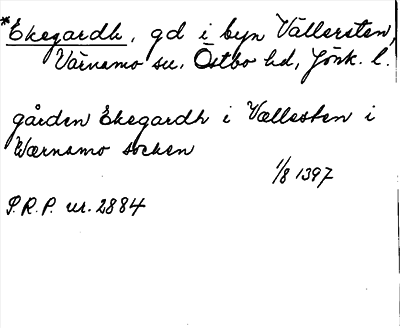 *Ekegardh, gd i byn Vällersten,
Värnamo sn, Östbo hd, Jönk. l.
gården Ekegardh i Vællesten i
Wærnamo socken
1/8 1397
P.R.P. nr. 2884